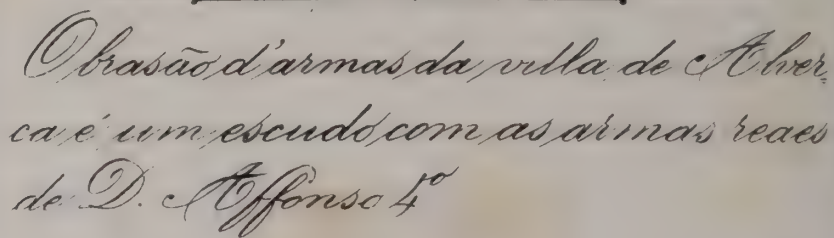 O brasão d'armas da villa de Alver=
ca é um escudo com as armas reaes
de D. Affonso 4º